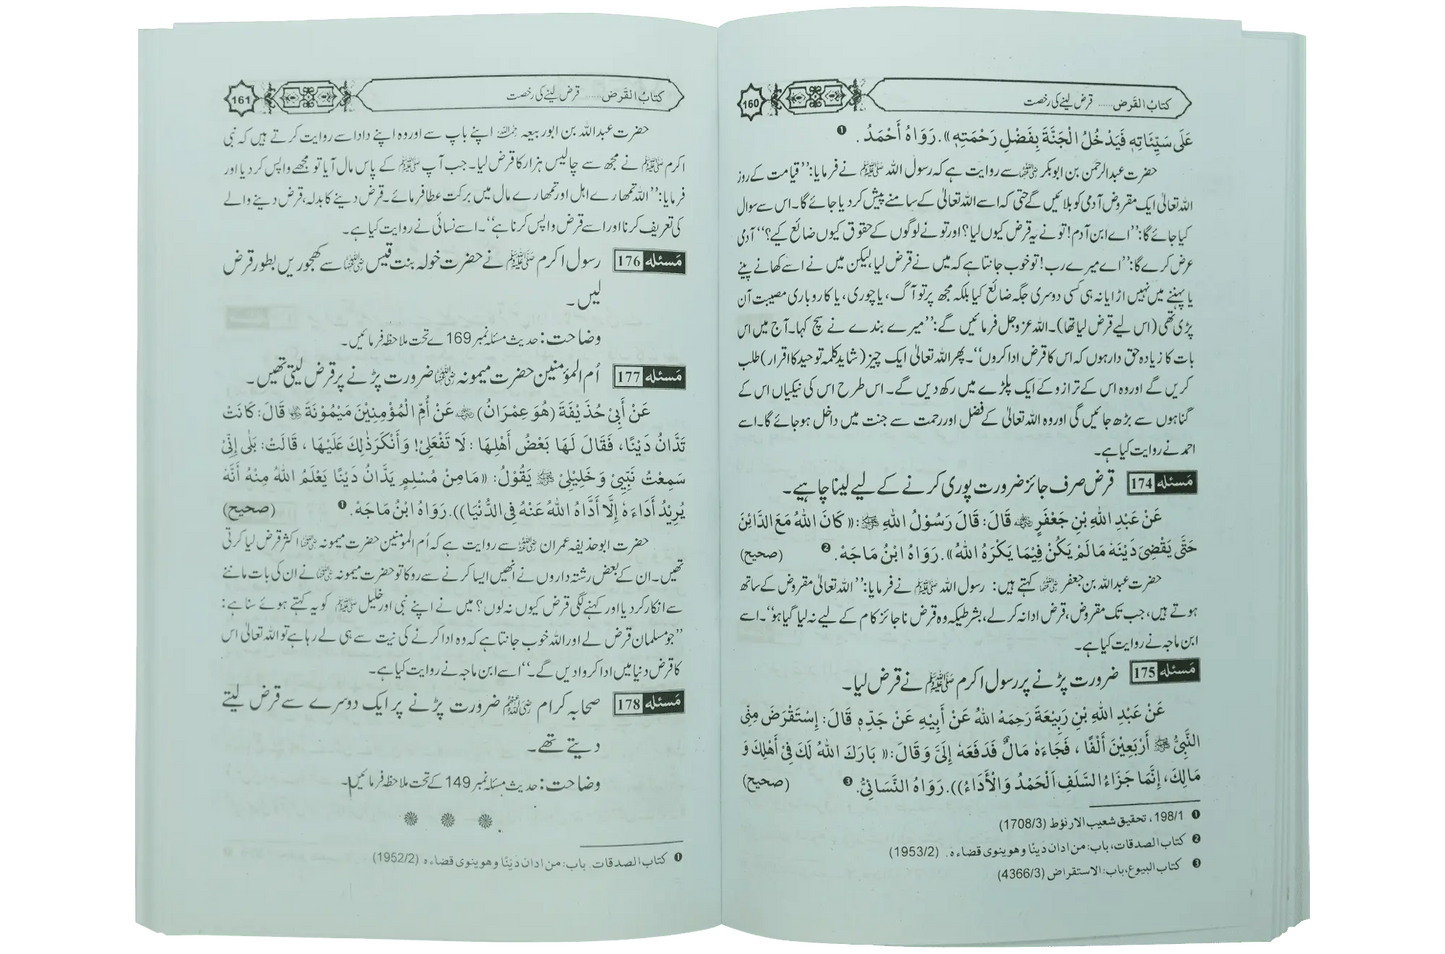 160
کتابُ القرض ...... قرض لینے کی رخصت
عَلَى سَيِّئَاتِهِ فَيَدْخُلُ الْجَنَّةَ بِفَضْلِ رَحْمَتِهِ)). رَوَاهُ أَحْمَدُ . ❶
حضرت عبدالرحمٰن بن ابوبکر رضی اللہ عنہ سے روایت ہے کہ رسول اللہ ﷺ نے فرمایا: ’’قیامت کے روز
اللہ تعالیٰ ایک مقروض آدمی کو بلائیں گے حتی کہ اسے اللہ تعالیٰ کے سامنے پیش کر دیا جائے گا۔ اس سے سوال
کیا جائے گا: ’’اے ابن آدم! تو نے یہ قرض کیوں لیا؟ اور تو نے لوگوں کے حقوق کیوں ضائع کیے؟‘‘ آدمی
عرض کرے گا: ’’اے میرے رب! تو خوب جانتا ہے کہ میں نے قرض لیا، لیکن میں نے اسے کھانے پینے
یا پہننے میں نہیں اڑایا نہ ہی کسی دوسری جگہ ضائع کیا بلکہ مجھ پر تو آگ، یا چوری، یا کاروباری مصیبت آن
پڑی تھی (اس لیے قرض لیا تھا)۔ اللہ عزوجل فرمائیں گے: ’’میرے بندے نے سچ کہا۔ آج میں اس
بات کا زیادہ حق دار ہوں کہ اس کا قرض ادا کروں‘‘۔ پھر اللہ تعالیٰ ایک چیز (شاید کلمہ توحید کا اقرار) طلب
کریں گے اور وہ اس کے ترازو کے ایک پلڑے میں رکھ دیں گے۔ اس طرح اس کی نیکیاں اس کے
گناہوں سے بڑھ جائیں گی اور وہ اللہ تعالیٰ کے فضل اور رحمت سے جنت میں داخل ہو جائے گا۔ اسے
احمد نے روایت کیا ہے۔
مَسئلہ 174 قرض صرف جائز ضرورت پوری کرنے کے لیے لینا چاہیے۔
عَنْ عَبْدِ اللّٰهِ بْنِ جَعْفَرٍ رضی اللہ عنہ قَالَ: قَالَ رَسُوْلُ اللّٰهِ ﷺ: ((كَانَ اللّٰهُ مَعَ الدَّائِنِ
حَتّٰى يَقْضِيَ دَيْنَهُ مَالَمْ يَكُنْ فِيْمَا يَكْرَهُ اللّٰهُ)). رَوَاهُ ابْنُ مَاجَهْ. ❷ (صحیح)
حضرت عبداللہ بن جعفر رضی اللہ عنہ کہتے ہیں: رسول اللہ ﷺ نے فرمایا: ’’اللہ تعالیٰ مقروض کے ساتھ
ہوتے ہیں، جب تک مقروض، قرض ادا نہ کر لے، بشرطیکہ وہ قرض ناجائز کام کے لیے نہ لیا گیا ہو‘‘۔ اسے
ابن ماجہ نے روایت کیا ہے۔
مَسئلہ 175 ضرورت پڑنے پر رسول اکرم ﷺ نے قرض لیا۔
عَنْ عَبْدِ اللّٰهِ بْنِ رَبِيْعَةَ رَحِمَهُ اللّٰهُ عَنْ أَبِيْهِ عَنْ جَدِّهِ قَالَ: إِسْتَقْرَضَ مِنِّي
النَّبِيُّ ﷺ أَرْبَعِيْنَ أَلْفًا ، فَجَاءَهُ مَالٌ فَدَفَعَهُ إِلَيَّ وَقَالَ: ((بَارَكَ اللّٰهُ لَكَ فِيْ أَهْلِكَ وَ
مَالِكَ، إِنَّمَا جَزَاءُ السَّلَفِ اَلْحَمْدُ وَالْأَدَاءُ)). رَوَاهُ النَّسَائِيُّ. ❸ (صحیح)
❶ 198/1، تحقیق شعیب الارنؤط (1708/3)
❷ کتاب الصدقات، باب: من ادان دَینًا وھوینوی قضاءہ. (1953/2)
❸ کتاب البیوع، باب: الاستقراض (4366/3)
161
کتابُ القرض ...... قرض لینے کی رخصت
حضرت عبداللہ بن ابو ربیعہ رحمہ اللہ اپنے باپ سے اور وہ اپنے دادا سے روایت کرتے ہیں کہ نبی
اکرم ﷺ نے مجھ سے چالیس ہزار کا قرض لیا۔ جب آپ ﷺ کے پاس مال آیا تو مجھے واپس کر دیا اور
فرمایا: ’’اللہ تمھارے اہل اور تمھارے مال میں برکت عطا فرمائے۔ قرض دینے کا بدلہ، قرض دینے والے
کی تعریف کرنا اور اسے قرض واپس کرنا ہے‘‘۔ اسے نسائی نے روایت کیا ہے۔
مَسئلہ 176 رسول اکرم ﷺ نے حضرت خولہ بنت قیس رضی اللہ عنہا سے کھجوریں بطور قرض
لیں۔
وضاحت: حدیث مسئلہ نمبر 169 ے تحت ملاحظہ فرمائیں۔
مَسئلہ 177 اُم المؤمنین حضرت میمونہ رضی اللہ عنہا ضرورت پڑنے پر قرض لیتی تھیں۔
عَنْ أَبِيْ حُذَيْفَةَ (هُوَ عِمْرَانُ) رضی اللہ عنہ عَنْ أُمِّ الْمُؤْمِنِيْنَ مَيْمُوْنَةَ رضی اللہ عنہا قَالَ: كَانَتْ
تَدَّانُ دَيْنًا، فَقَالَ لَهَا بَعْضُ أَهْلِهَا : لَا تَفْعَلِيْ! وَأَنْكَرَ ذٰلِكَ عَلَيْهَا ، قَالَتْ: بَلٰى إِنِّيْ
سَمِعْتُ نَبِيِّيْ وَ خَلِيْلِيْ ﷺ يَقُوْلُ: ((مَامِنْ مُسْلِمٍ يَدَّانُ دَيْنًا يَعْلَمُ اللّٰهُ مِنْهُ أَنَّهُ
يُرِيْدُ أَدَاءَهُ إِلَّا أَدَّاهُ اللّٰهُ عَنْهُ فِي الدُّنْيَا)). رَوَاهُ ابْنُ مَاجَهْ. ❶ (صحیح)
حضرت ابو حذیفہ عمران رضی اللہ عنہ سے روایت ہے کہ اُم المؤمنین حضرت میمونہ رضی اللہ عنہا اکثر قرض لیا کرتی
تھیں۔ ان کے بعض رشتہ داروں نے انھیں ایسا کرنے سے روکا تو حضرت میمونہ رضی اللہ عنہا نے ان کی بات ماننے
سے انکار کر دیا اور کہنے لگی قرض کیوں نہ لوں؟ میں نے اپنے نبی اور خلیل ﷺ کو یہ کہتے ہوئے سنا ہے:
’’جو مسلمان قرض لے اور اللہ خوب جانتا ہے کہ وہ ادا کرنے کی نیت سے ہی لے رہا ہے تو اللہ تعالیٰ اس
کا قرض دنیا میں ادا کروا دیں گے۔‘‘ اسے ابن ماجہ نے روایت کیا ہے۔
مَسئلہ 178 صحابہ کرام رضی اللہ عنہم ضرورت پڑنے پر ایک دوسرے سے قرض لیتے
دیتے تھے۔
وضاحت: حدیث مسئلہ نمبر 149 کے تحت ملاحظہ فرمائیں۔
❶ کتاب الصدقات. باب: من ادان دَینًا وھوینوی قضاءہ (1952/2)